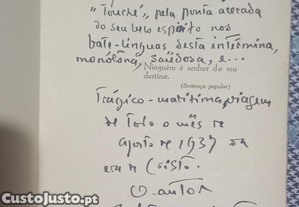 "Touché", pela ponta acerada
do seu belo espírito nos
bate-línguas desta intérmina,
monótona, saudosa, e...
Ninguém é senhor do seu
destino.
(Sentença popular)
Trágico-marítima viagem
de todo o mês de
Agosto de 1937 da
era de Cristo.
O autor
CustoJusto.pt